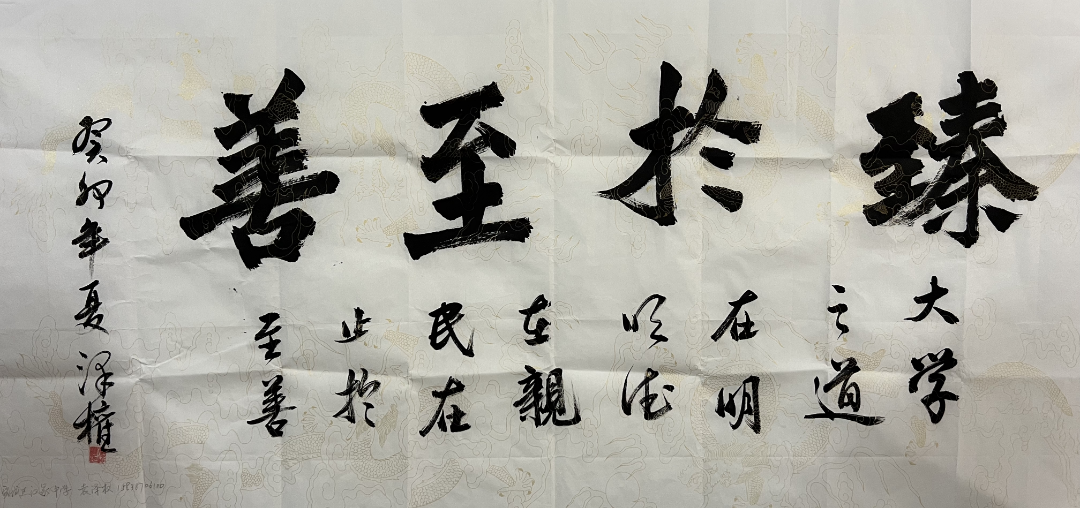 臻於至善
大学
之道
在明
明德
在親
民在
止於
至善
癸卯年夏泽權